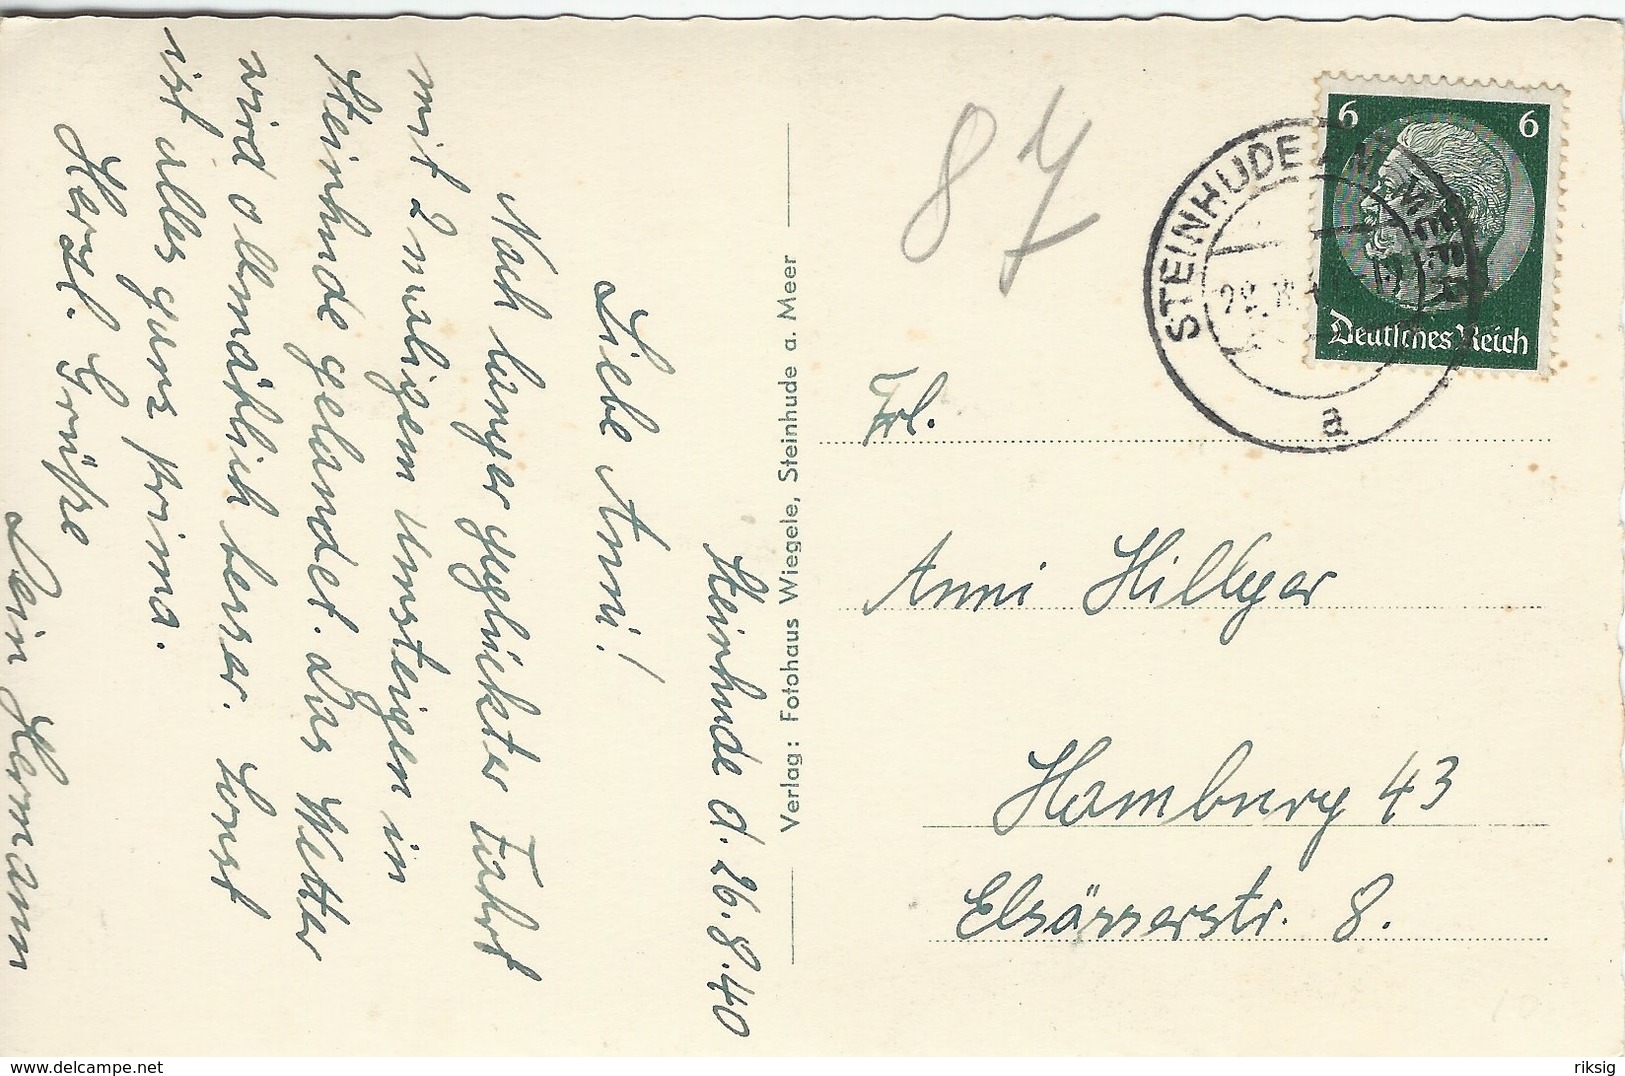 Steinhude d. 26.8.40
Liebe Anni!
Nach langer geglückter Fahrt
mit 2 maligem Umsteigen in
Steinhude gelandet. Das Wetter
wird allmählich besser. Sonst
ist alles ganz prima.
Herzl. Grüße
Dein Hermann
Verlag: Fotohaus Wiegele, Steinhude a. Meer
87
6 6
Deutsches Reich
STEINHUDE
a
Frl.
Anni Hillger
Hamburg 43
Elsässerstr. 8.
riksig